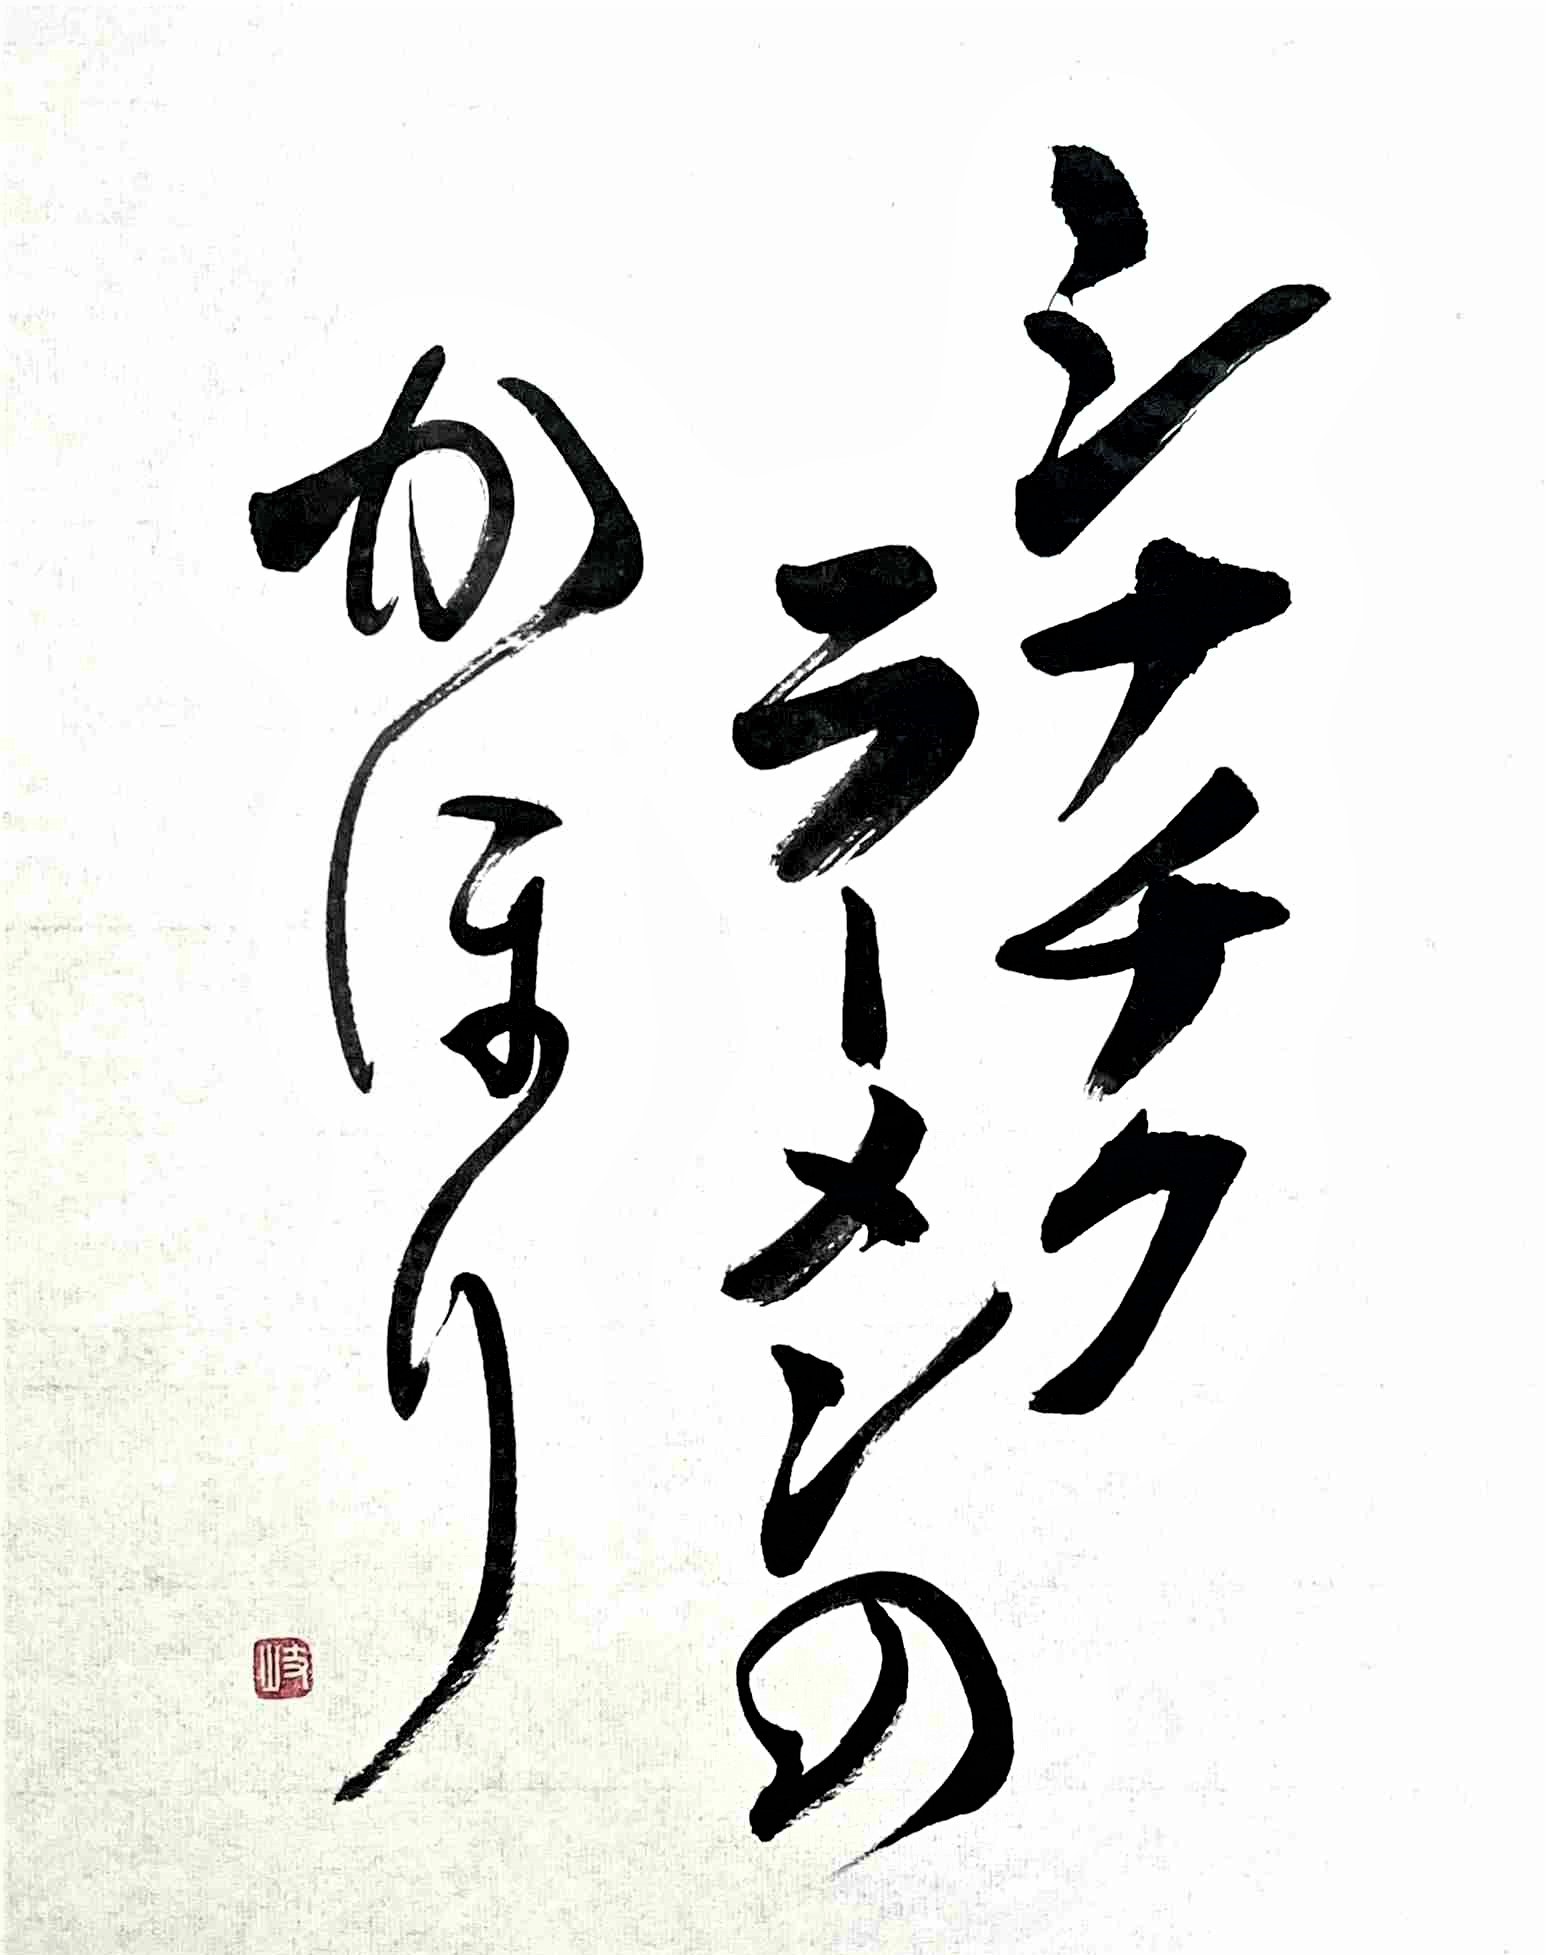 シナチク
ラーメンの
かほり
岐